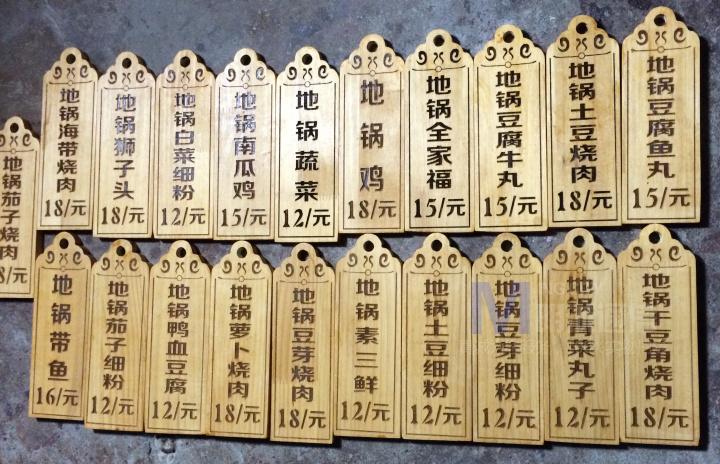 地锅茄子烧肉
8/元
地锅海带烧肉
18/元
地锅狮子头
18/元
地锅白菜细粉
12/元
地锅南瓜鸡
15/元
地锅蔬菜
12/元
地锅鸡
18/元
地锅全家福
15/元
地锅豆腐牛丸
15/元
地锅土豆烧肉
18/元
地锅豆腐鱼丸
15/元
地锅带鱼
16/元
地锅茄子细粉
12/元
地锅鸭血豆腐
12/元
地锅萝卜烧肉
18/元
地锅豆芽烧肉
18/元
地锅素三鲜
12/元
地锅土豆细粉
12/元
地锅豆芽细粉
12/元
地锅青菜丸子
12/元
地锅干豆角烧肉
18/元